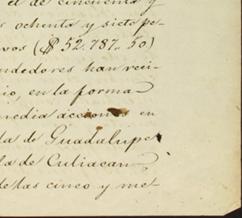 a de cincuenta y
s ochenta y siete pe-
vos ($52.787.. 50)
ndedores han reci-
io, en la forma
media acciones en
la de Guadalupe
la de Culiacan,
de las cinco y me-